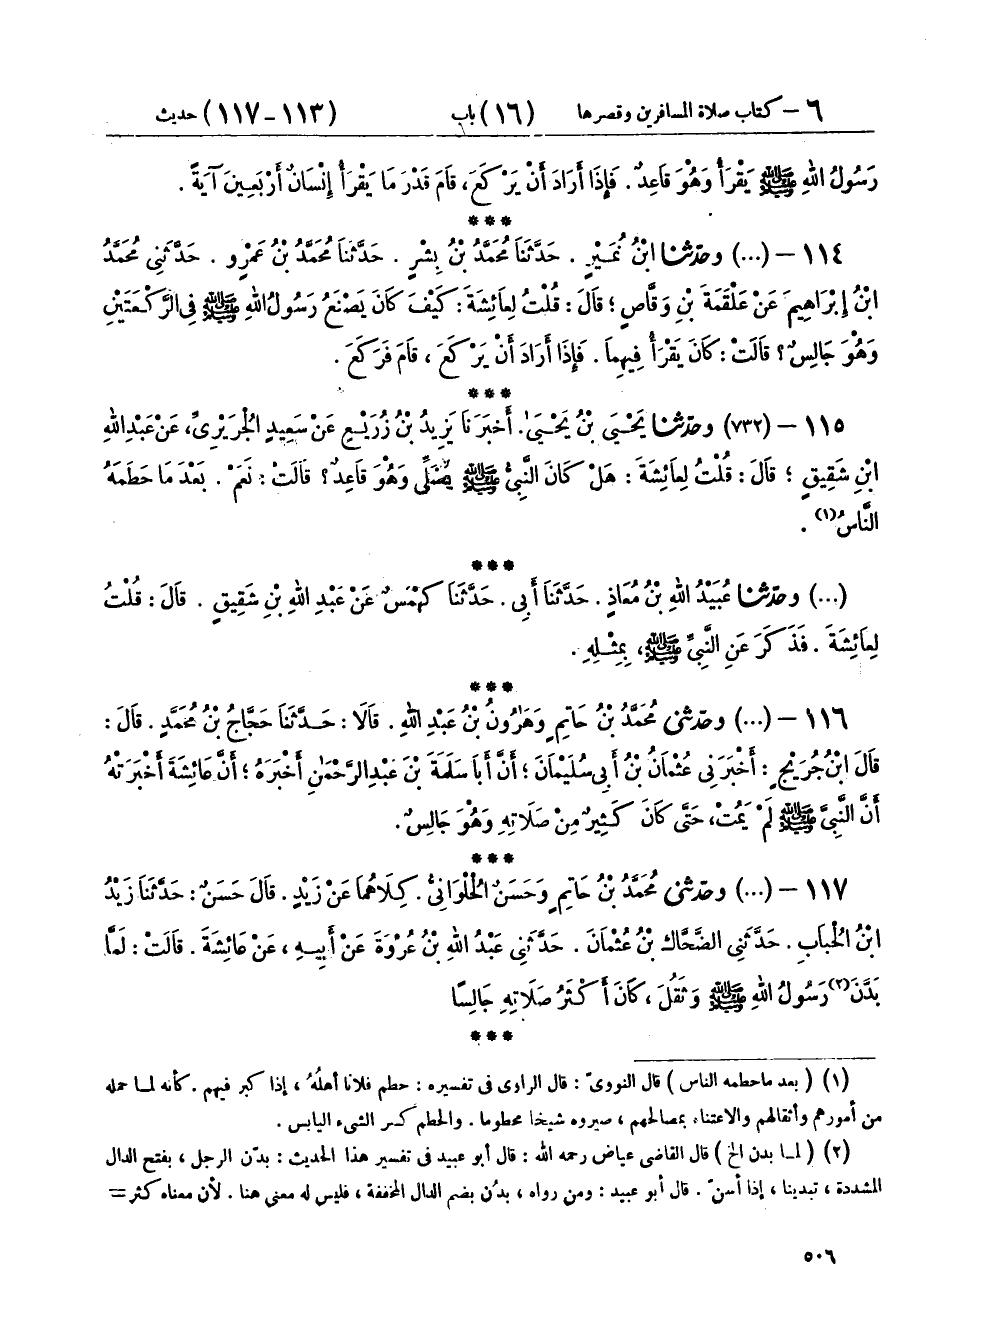 ٦ – كتاب صلاة المسافرين وقصرها (١٦) باب (١١٣-١١٧) حديث
رَسُولُ اللهِ ﷺ يَقْرَأُ وَهُوَ قَاعِدٌ . فَإِذَا أَرَادَ أَنْ يَرْكَعَ، قَامَ قَدْرَ مَا يَقْرَأُ إِنْسَانٌ أَرْبَعِينَ آيَةً .
***
١١٤ – (...) وحدّثنا ابْنُ نُمَيْرٍ . حَدَّثَنَا مُحَمَّدُ بْنُ بِشْرٍ . حَدَّثَنَا مُحَمَّدُ بْنُ عَمْرٍو . حَدَّثَنِي مُحَمَّدُ
ابْنُ إِبْرَاهِيمَ عَنْ عَلْقَمَةَ بْنِ وَقَّاصٍ ؛ قَالَ : قُلْتُ لِعَائِشَةَ : كَيْفَ كَانَ يَصْنَعُ رَسُولُ اللهِ ﷺ فِي الرَّكْعَتَيْنِ
وَهُوَ جَالِسٌ ؟ قَالَتْ : كَانَ يَقْرَأُ فِيهِمَا . فَإِذَا أَرَادَ أَنْ يَرْكَعَ ، قَامَ فَرَكَعَ .
***
١١٥ – (٧٣٢) وحدّثنا يَحْيَى بْنُ يَحْيَىٰ. أَخْبَرَنَا يَزِيدُ بْنُ زُرَيْعٍ عَنْ سَعِيدٍ الْجُرَيْرِيِّ، عَنْ عَبْدِ اللهِ
ابْنِ شَقِيقٍ ؛ قَالَ : قُلْتُ لِعَائِشَةَ : هَلْ كَانَ النَّبِيُّ ﷺ يُصَلِّي وَهُوَ قَاعِدٌ ؟ قَالَتْ : نَعَمْ . بَعْدَ مَا حَطَمَهُ
النَّاسُ(١) .
***
(...) وحدّثنا عُبَيْدُ اللهِ بْنُ مُعَاذٍ . حَدَّثَنَا أَبِي . حَدَّثَنَا كَهْمَسٌ عَنْ عَبْدِ اللهِ بْنِ شَقِيقٍ . قَالَ : قُلْتُ
لِعَائِشَةَ . فَذَكَرَ عَنِ النَّبِيِّ ﷺ، بِمِثْلِهِ .
***
١١٦ – (...) وحدّثني مُحَمَّدُ بْنُ حَاتِمٍ وَهَٰرُونُ بْنُ عَبْدِ اللهِ . قَالَا : حَدَّثَنَا حَجَّاجُ بْنُ مُحَمَّدٍ . قَالَ :
قَالَ ابْنُ جُرَيْجٍ : أَخْبَرَنِي عُثْمَانُ بْنُ أَبِي سُلَيْمَانَ ؛ أَنَّ أَبَا سَلَمَةَ بْنَ عَبْدِ الرَّحْمَٰنِ أَخْبَرَهُ ؛ أَنَّ عَائِشَةَ أَخْبَرَتْهُ
أَنَّ النَّبِيَّ ﷺ لَمْ يَمُتْ، حَتَّى كَانَ كَثِيرٌ مِنْ صَلَاتِهِ وَهُوَ جَالِسٌ.
***
١١٧ – (...) وحدّثني مُحَمَّدُ بْنُ حَاتِمٍ وَحَسَنٌ الْحُلْوَانِيُّ . كِلَاهُمَا عَنْ زَيْدٍ . قَالَ حَسَنٌ : حَدَّثَنَا زَيْدُ
ابْنُ الْحُبَابِ . حَدَّثَنِي الضَّحَّاكُ بْنُ عُثْمَانَ . حَدَّثَنِي عَبْدُ اللهِ بْنُ عُرْوَةَ عَنْ أَبِيهِ ، عَنْ عَائِشَةَ . قَالَتْ : لَمَّا
بَدَّنَ(٢) رَسُولُ اللهِ ﷺ وَثَقُلَ ، كَانَ أَكْثَرُ صَلَاتِهِ جَالِسًا
***
(١) ( بعد ماحطمه الناس ) قال النووىّ : قال الراوى فى تفسيره : حطم فلانا أهلُهُ ، إذا كبر فيهم . كأنه لما حمله
من أمورهم وأثقالهم والاعتناء بمصالحهم ، صيروه شيخا محطوما . والحطم كسر الشىء اليابس .
(٢) ( لما بدن الخ ) قال القاضى عياض رحمه الله : قال أبو عبيد فى تفسير هذا الحديث : بدّن الرجل ، بفتح الدال
المشددة ، تبدينا ، إذا أسنّ . قال أبو عبيد : ومن رواه ، بدُن بضم الدال المخففة ، فليس له معنى هنا . لأن معناه كثر =
٥٠٦